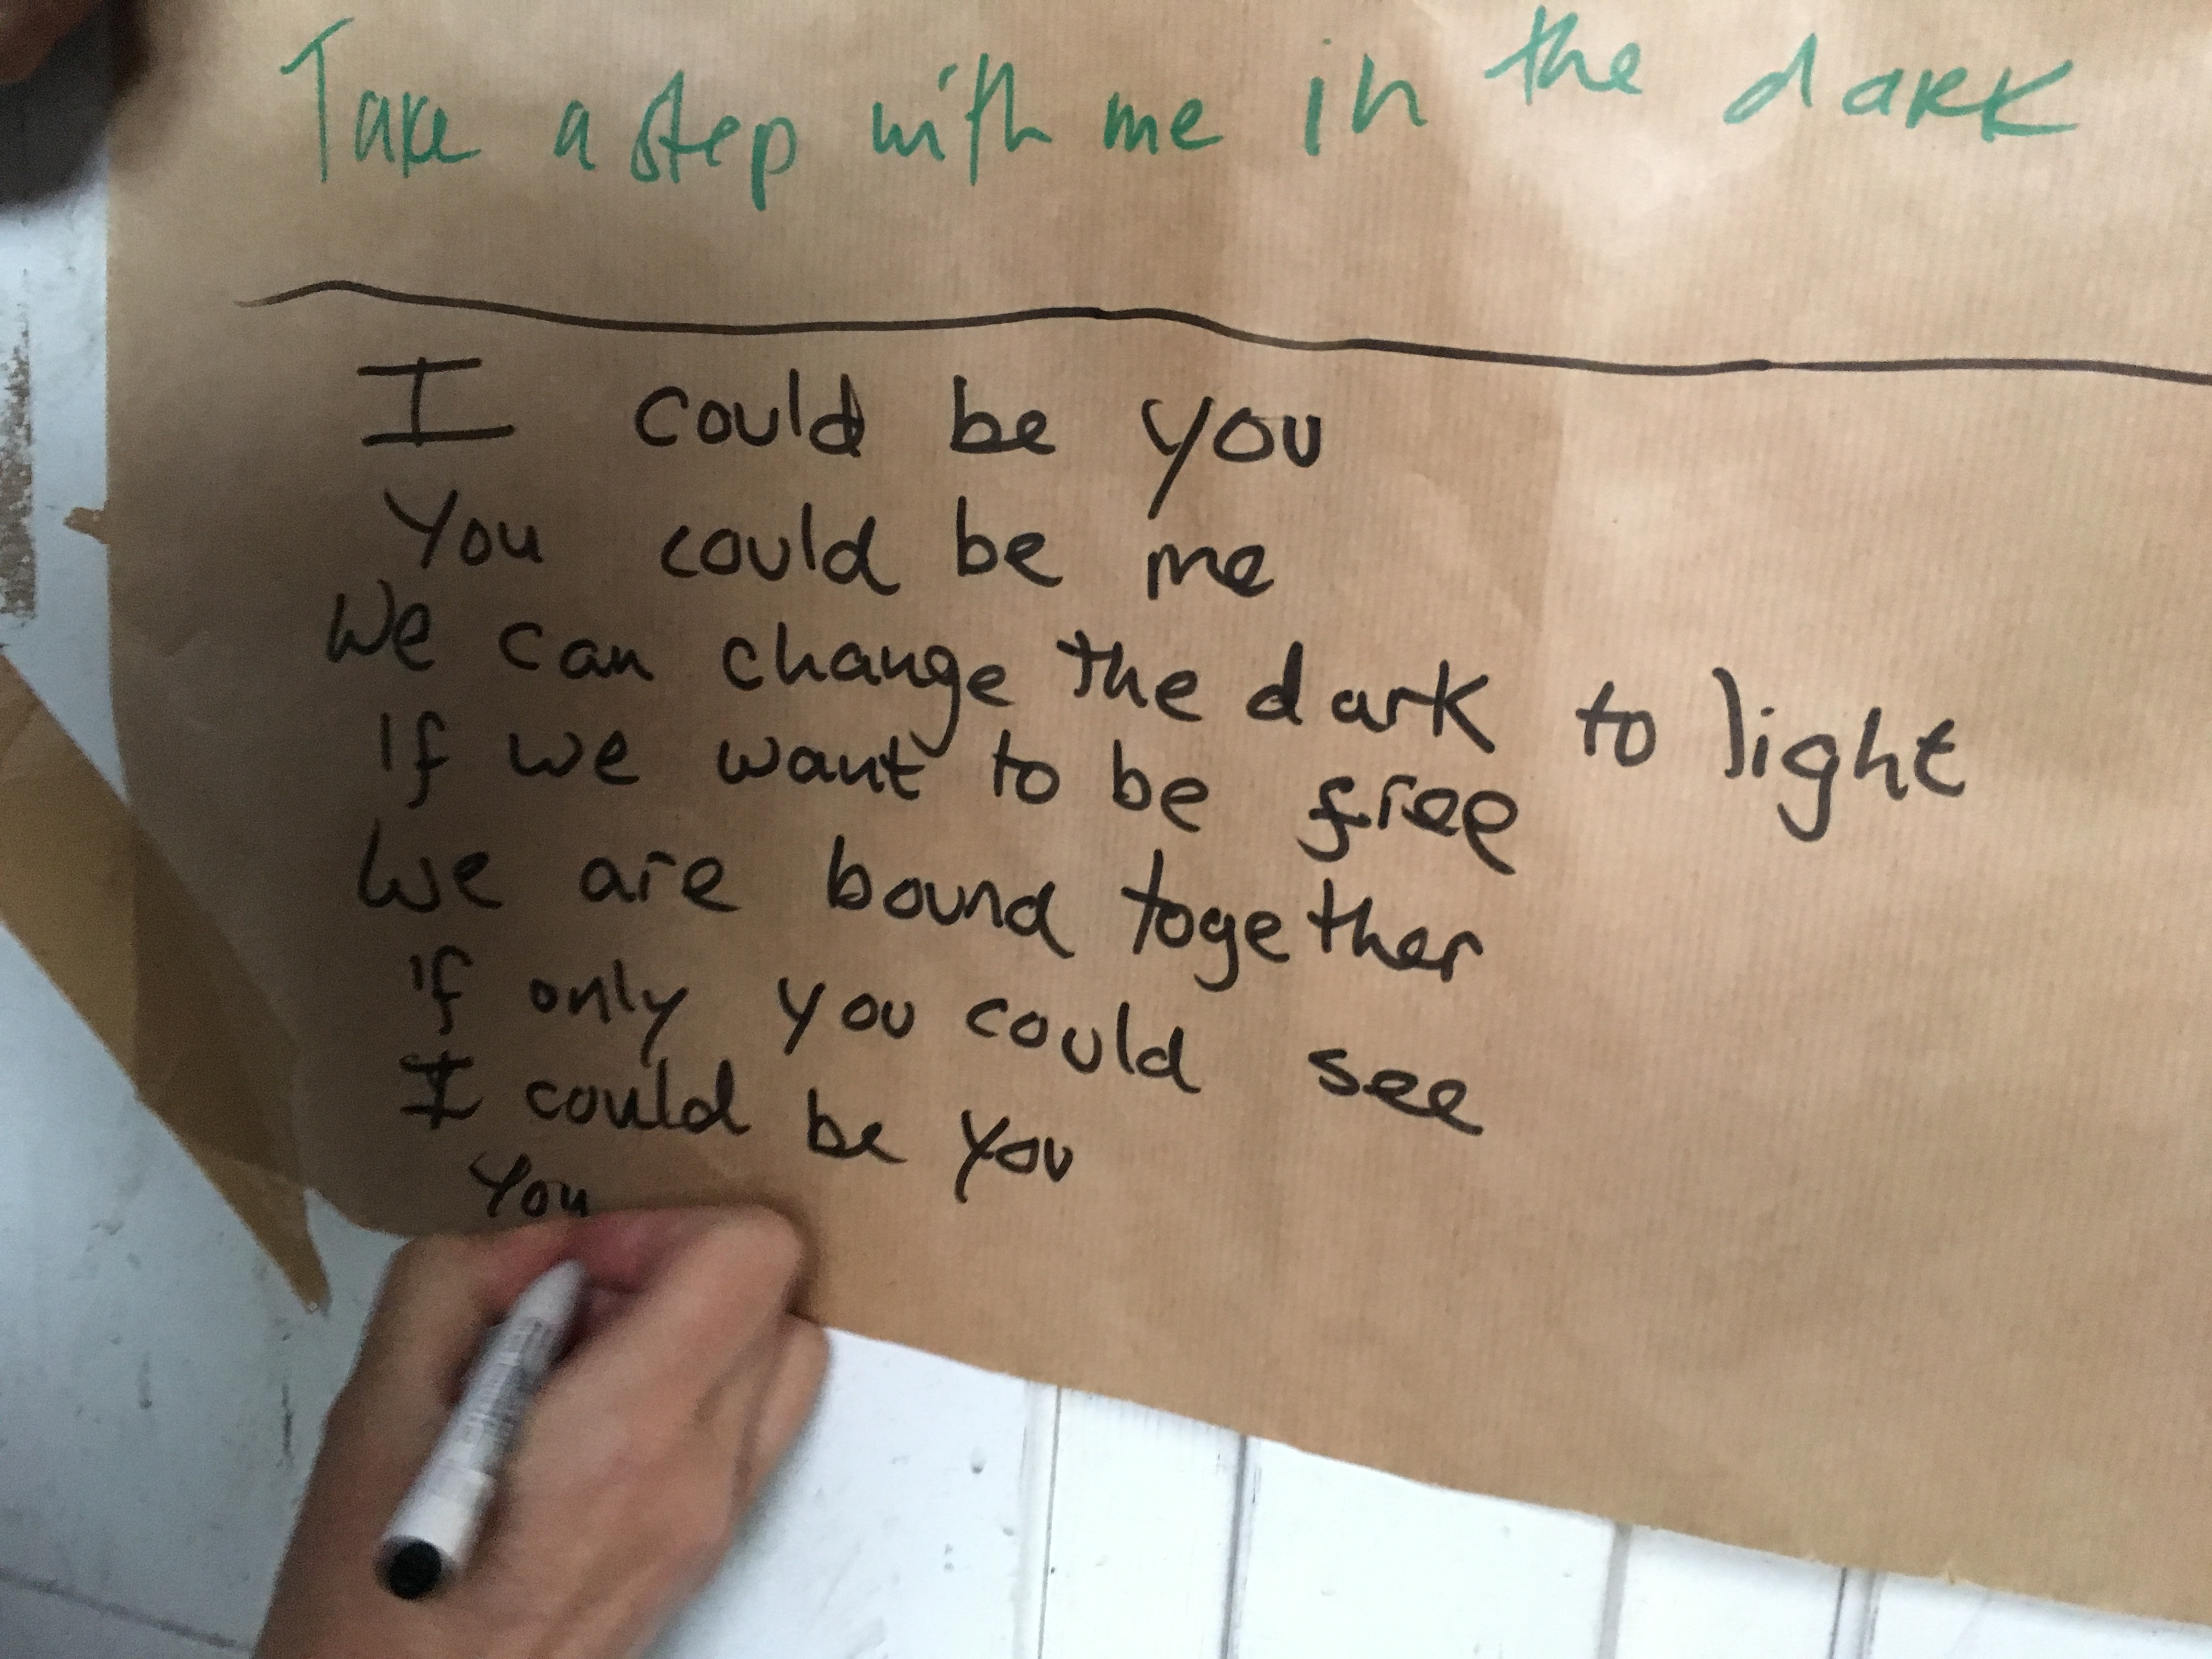 Take a step with me in the dark
I could be you
You could be me
We can change the dark to light
If we want to be free
We are bound together
if only you could see
I could be you
You